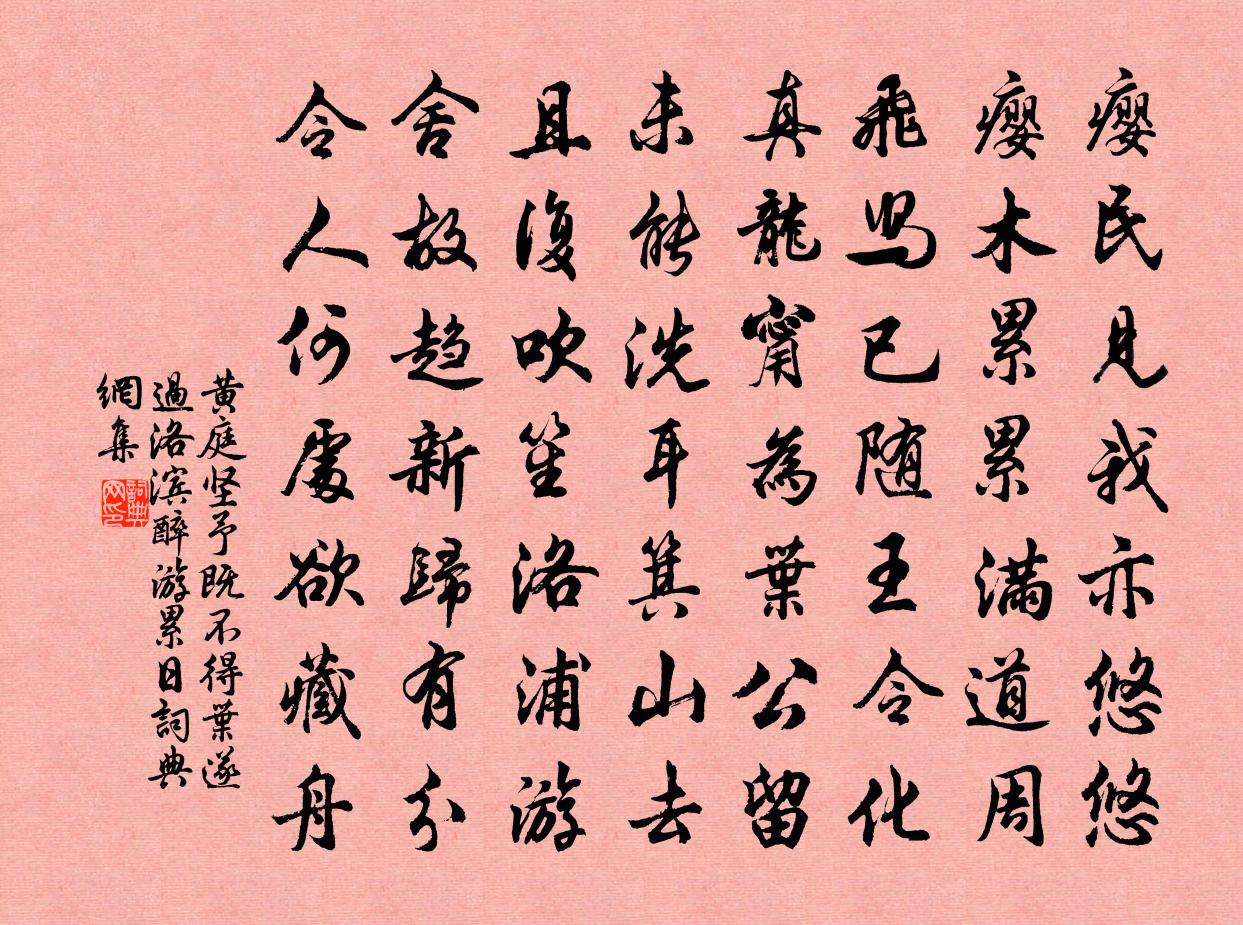 瘿民见我亦悠悠
瘿木累累满道周
飛舃已随王令化
真龍甯為葉公留
未能洗耳箕山去
且復吹笙洛浦游
舍故趋新歸有分
令人何處欲藏舟
黄庭坚予既不得葉遂
過洛滨醉游累日詞典
網集
詞典